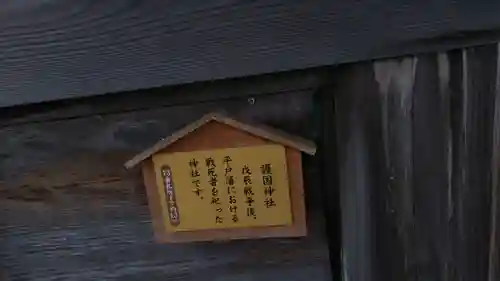 護国神社
戊辰戦争後、
平戸藩における
戦死者を祀った
神社です。